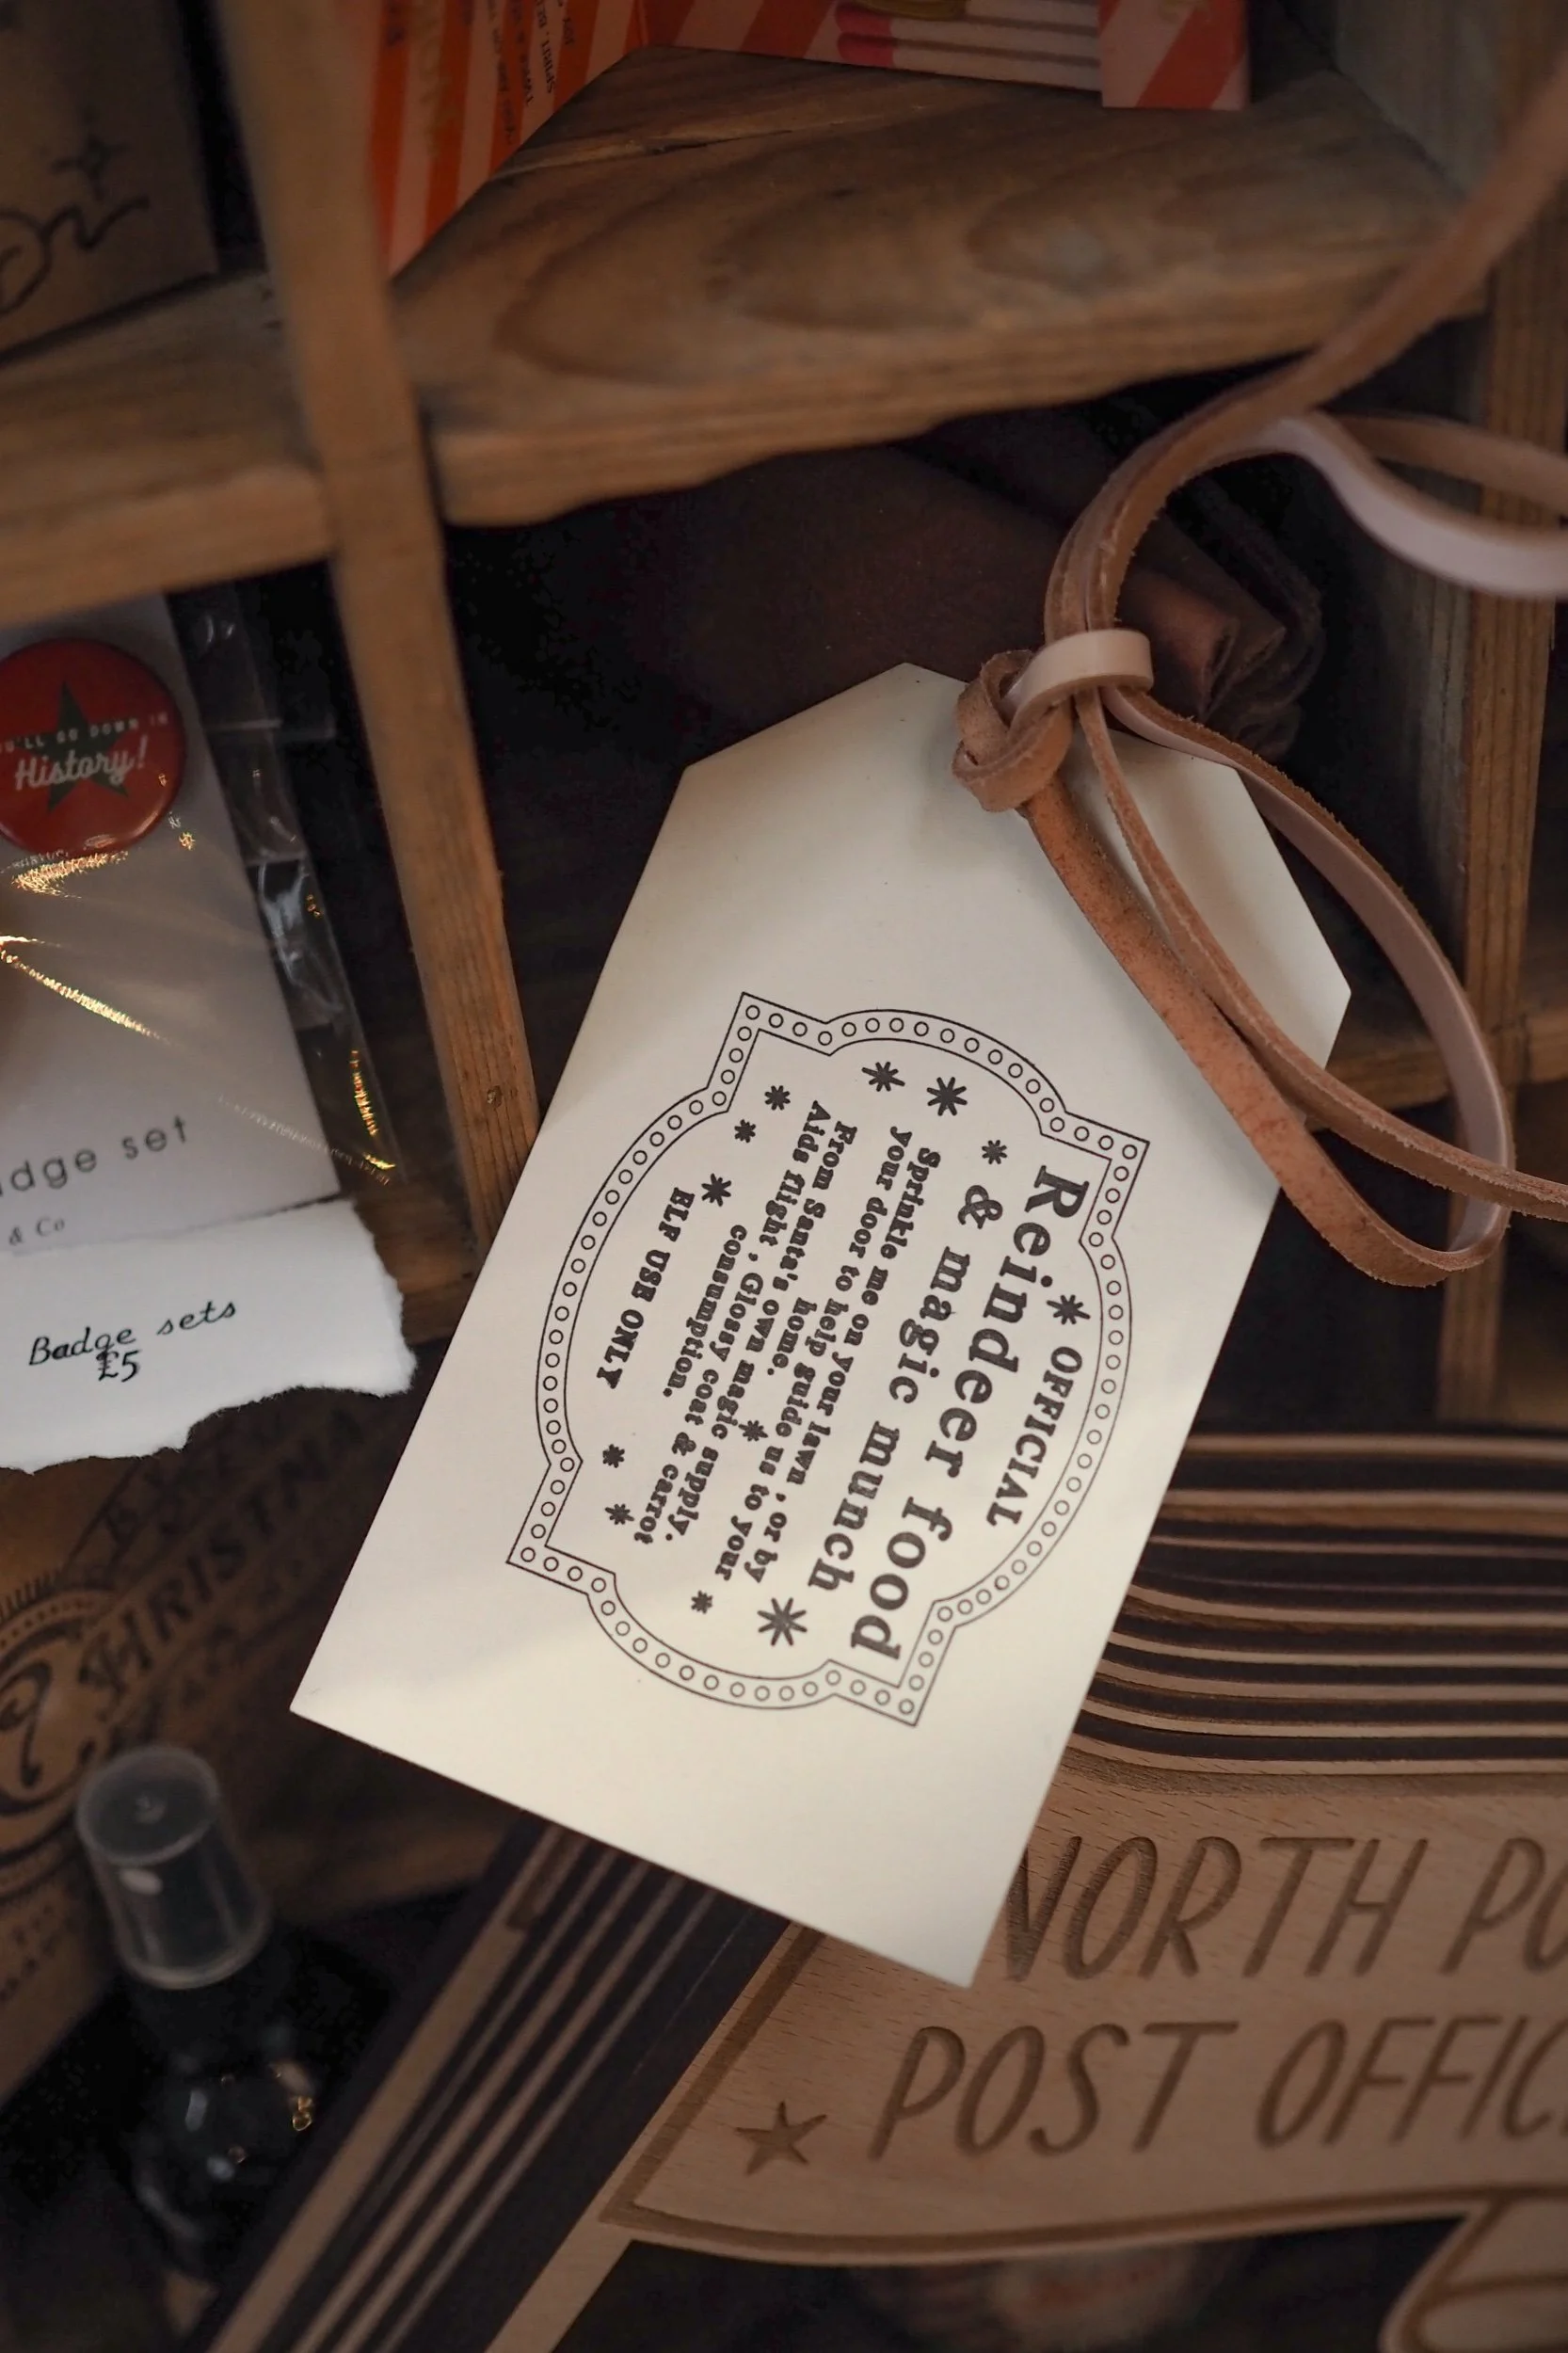 OFFICIAL
Reindeer food
& magic munch
Sprinkle me on your lawn , or by
your door to help guide us to your
home.
From Santa's own magic supply.
Aids flight , Glossy coat & carrot
consumption.
ELF USE ONLY
'LL GO DOWN IN
History!
dge set
& Co
Badge sets
£5
NORTH PO
POST OFFIC
HRISTMA